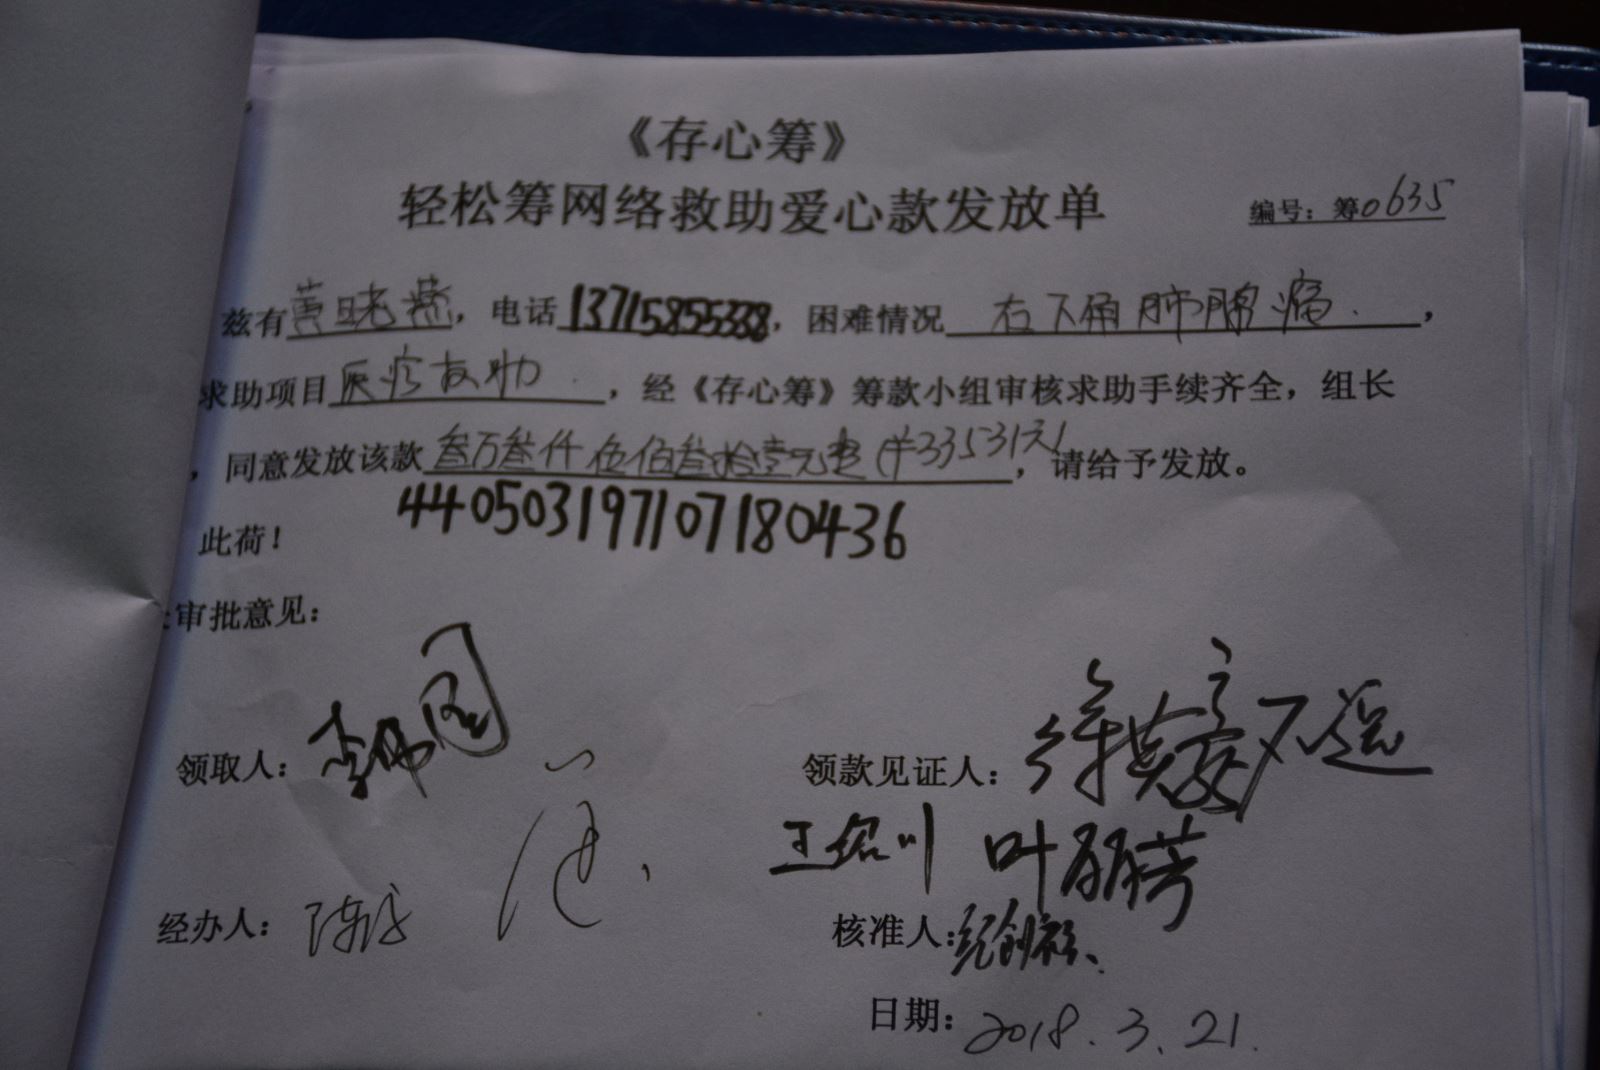 《存心筹》
轻松筹网络救助爱心款发放单
编号：筹0635
兹有黄晓紫，电话13715855338，困难情况右下角肺腺癌，
求助项目医疗救助，经《存心筹》筹款小组审核求助手续齐全，组长
，同意发放该款叁万叁仟伍佰叁拾壹元整(¥33531元)，请给予发放。
此荷！
440503197107180436
审批意见：
领取人：
领款见证人：
王绍川 叶丽芳
经办人：
核准人：
日期：2018.3.21.